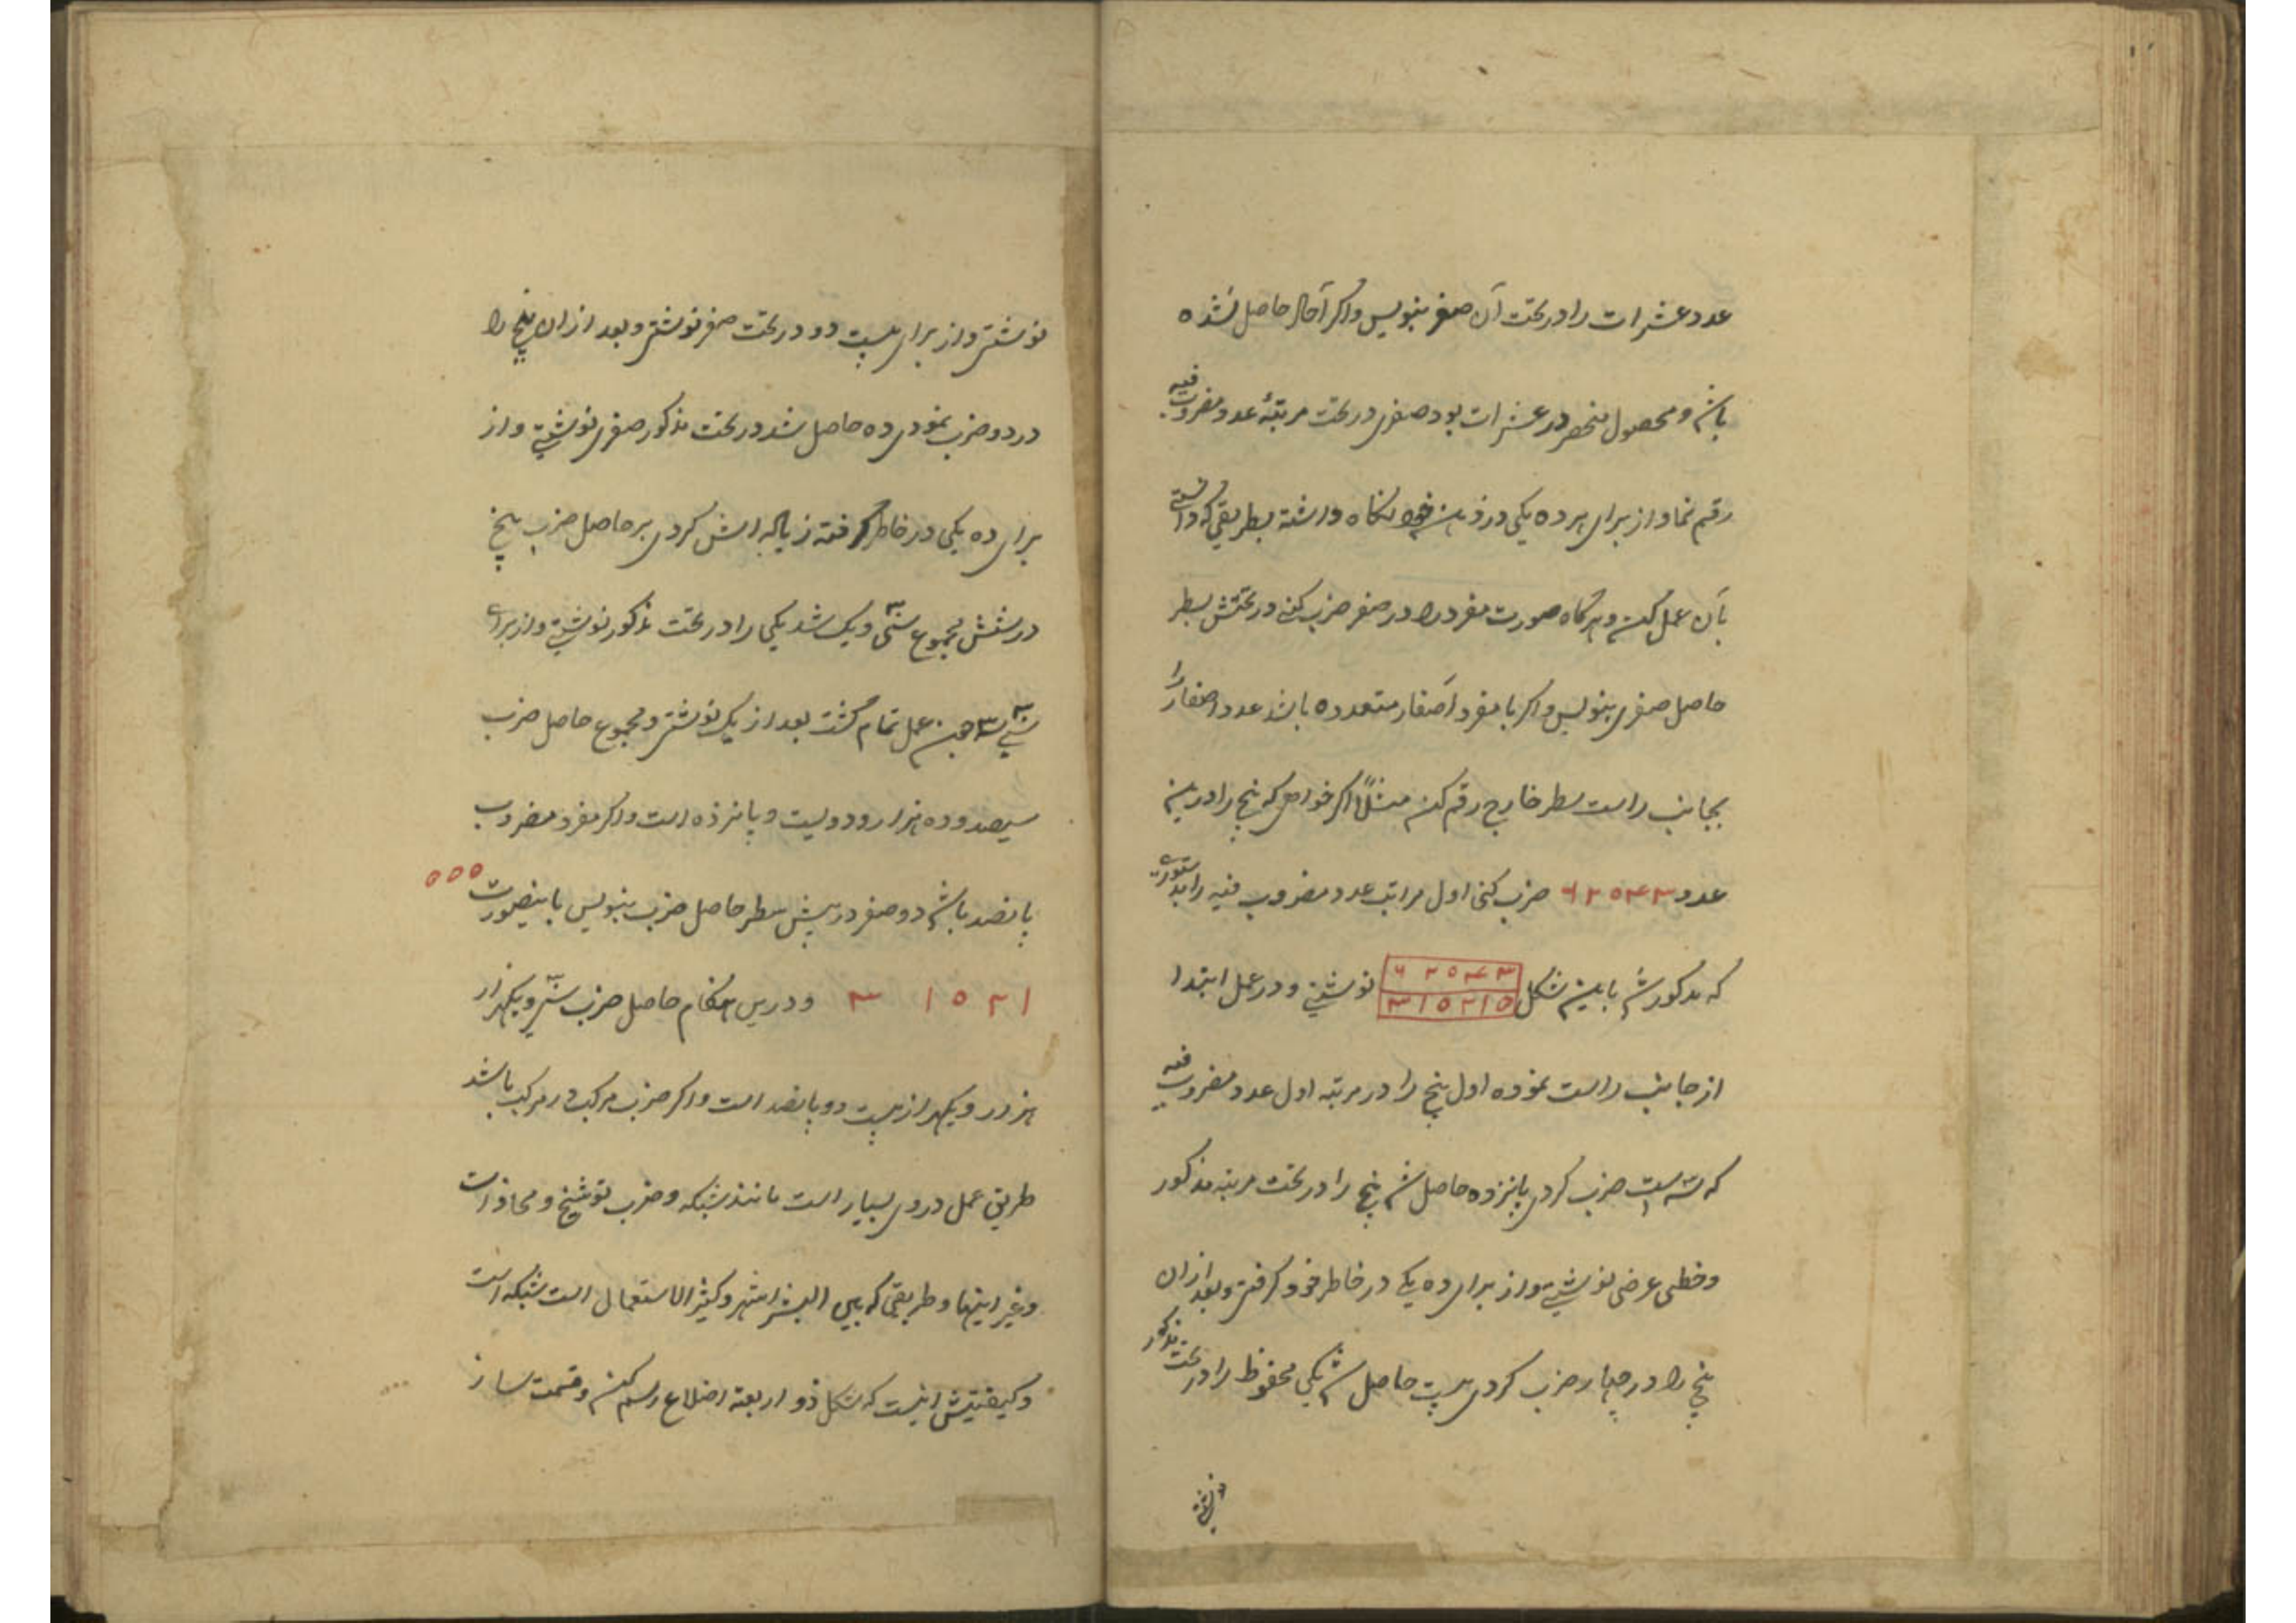 عدد عشرات را در تحت آن صفر بنویس و اکر آحاد حاصل نشده
باشد و محصول منحصر در عشرات بود صفری در تحت مرتبهٔ عدد مضروب فیه
رقم نما و از برای هر ده یکی در ذهن خود نکاه داشته بطریقی که دانستی
بآن عمل کن و هرکاه صورت مفرد را در صفر ضرب کنی در تحتش بسطر
حاصل صفری بنویس و اکر با مفرد اصفار متعدده باشد عدد اصفار را
بجانب راست سطر خارج رقم کن مثلاً اکر خواهی که پنج را درین
عدد ۶۲۰۴۳ ضرب کنی اول مراتب عدد مضروب فیه را بدستوری
که مذکور شد باین شکل نوشتی و در عمل ابتدا
۶ ۲ ۰ ۴ ۳
۳ ۱ ۰ ۲ ۱ ۵
از جانب راست نموده اول پنج را در مرتبه اول عدد مضروب فیه
که سه است ضرب کردی پانزده حاصل شد پنج را در تحت مرتبه مذکور
و خطی عرضی نوشتی و از برای ده یکی در خاطر خود کرفتی و بعد ازان
پنج را در چهار ضرب کردی بیست حاصل شد یکی محفوظ را در تحت مذکور
نوشتی و از برای بیست دو در تحت صفر نوشتی و بعد ازان پنج را
در دو ضرب نمودی ده حاصل شد در تحت مذکور صفری نوشتی و از
برای ده یکی در خاطر کرفته زیاده اش کردی بر حاصل ضرب پنج
در شش مجموع سی و یک شد یکی را در تحت مذکور نوشتی و از برای
سی ۳ عمل تمام کشت بعد از یک نوشتی و مجموع حاصل ضرب
سیصد و ده هزار و دویست و پانزده است و اکر مفرد مضروب
پانصد باشد دو صفر در پیش سطر حاصل ضرب بنویس باینصورت ۰ ۰ ۰
۳ ۱ ۰ ۲ ۱ و درین هنکام حاصل ضرب سی و یکهزار
هزار و یکهزار بیست و پانصد است و اکر ضرب مرکب در مرکب باشد
طریق عمل دروی بسیار است مانند شبکه و ضرب توشیح و محاذات
و غیر اینها و طریقی که بین البشر اشهر و کثیر الاستعمال است شبکه است
و کیفیتش اینست که شکل ذو اربعة اضلاع رسم کن و قسمت ساز